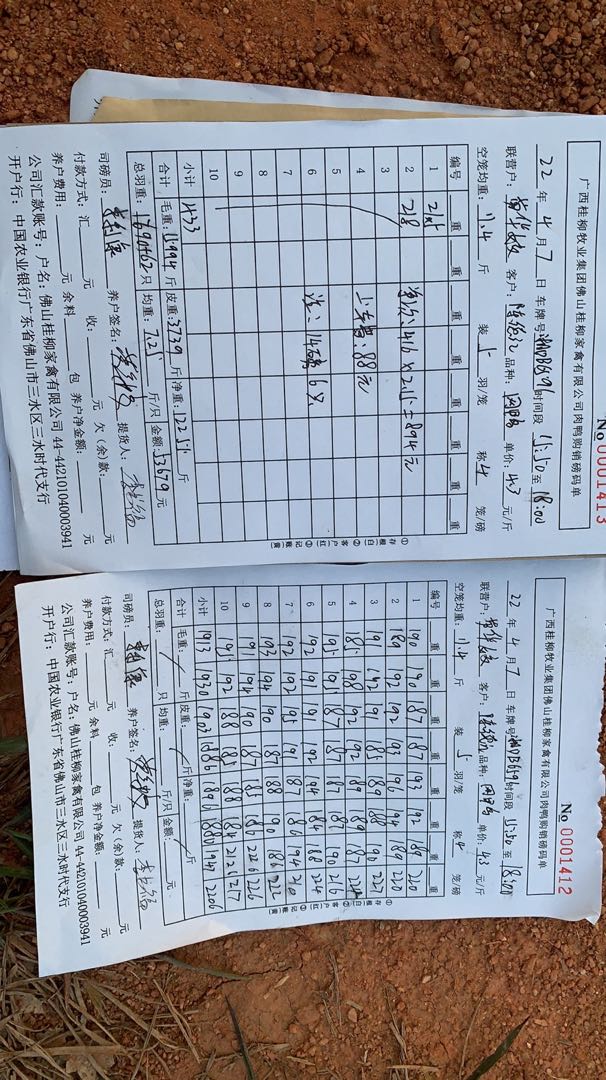 广西桂柳牧业集团佛山桂柳家禽有限公司肉鸭购销磅码单
No 0001413
22 年 4 月 7 日 车牌号 时间段 15:50 至 18:00
联营户: 客户: 品种: 肉鸭 单价: 4.3 元/斤
空笼均重: 11.4 斤 装 5 羽/笼 称 4 笼/磅
编号 重 重 重 重 重 重 重 重
1 215
2 218 单价: 416 x 2.15 = 894元
3
4 上车费: 88元
5
6 注: 14 6只
7
8
9
10
小计 433
合计: 毛重: 15994 斤 皮重: 3739 斤 净重: 12255 斤
总羽重: 1690+62 只 均重: 7.25 斤/只 金额: 53679 元
司磅员: 养户签名: 提货人:
付款方式: 汇 元 收: 元 欠(余)款: 元
养户费用: 元 余料 包 养户净金额: 元
公司汇款账号: 户名: 佛山桂柳家禽有限公司 44-442101040003941
开户行: 中国农业银行广东省佛山市三水区三水时代支行
①存根(白)②客户(红)③记账(黄)
广西桂柳牧业集团佛山桂柳家禽有限公司肉鸭购销磅码单
No 0001412
22 年 4 月 7 日 车牌号 时间段 15:50 至 18:00
联营户: 客户: 品种: 肉鸭 单价: 4.3 元/斤
空笼均重: 11.4 斤 装 5 羽/笼 称 4 笼/磅
编号 重 重 重 重 重 重 重 重
1 190 190 187 187 193 192 189 220
2 189 192 192 193 196 194 189 220
3 191 191 185 189 188 190 227
4 185 198 192 192 189 189 187
5 195 192 187 187 187 187 190 216
6 192 191 191 192 194 184 188 224
7 192 192 195 191 187 186 194
8 193 194 190 187 188 190 186 222
9 191 194 190 187 185 186 226 226
10 195 192 188 185 188 184 212 217
小计 1913 1930 1903 1886 1880 1947 2206
合计: 毛重: 斤 皮重: 斤 净重: 斤
总羽重: 只 均重: 斤/只 金额: 元
司磅员: 养户签名: 提货人:
付款方式: 汇 元 收: 元 欠(余)款: 元
养户费用: 元 余料 包 养户净金额: 元
公司汇款账号: 户名: 佛山桂柳家禽有限公司 44-442101040003941
开户行: 中国农业银行广东省佛山市三水区三水时代支行
①存根(白)②客户(红)③记账(黄)